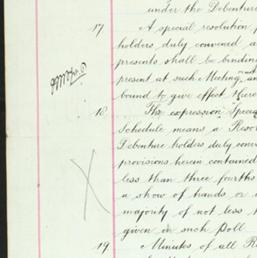 under the Debenture
17 A special resolution
holders duly convened a
presents shall be binding
present at such Meeting an
bound to give effect there
18 The expression Special
Schedule means a Resol
Debenture holders duly conv
provisions herein contained
less than three fourths
a show of hands or
majority of not less t
given in such Poll
19 Minutes of all R